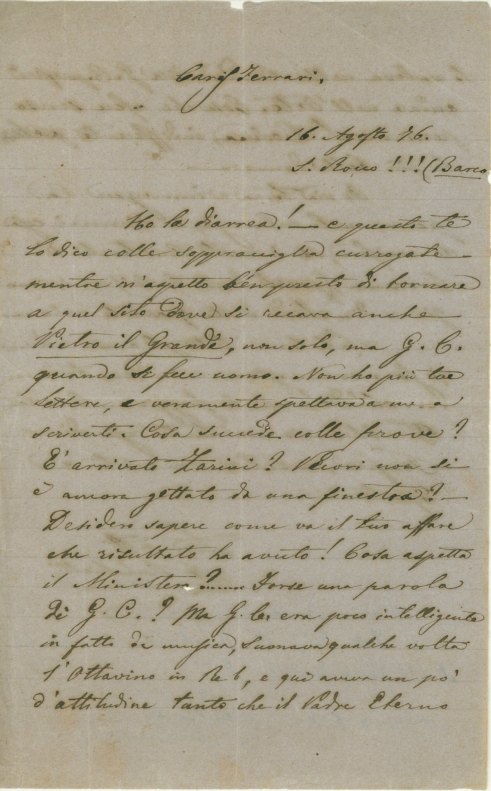 Cariss Ferrari.
16. Agosto 76.
S. Rocco!!! (Barco
Ho la diarrea! — e questo te
lo dico colle sopraciglia currogate
mentre m'aspetto benpresto di tornare
a quel sito dove si recava anche
Pietro il Grande, non solo, ma G. C.
quando si fece uomo. Non ho più tue
lettere, e veramente spettava a me a
scriverti. Cosa succede colle prove?
È arrivato Zarini? Ricori non si
è ancora gettato da una finestra? —
Desidero sapere come va il tuo affare
che risultato ha avuto! Cosa aspetta
il Minister? ...... Forse una parola
di G. C.? Ma G. C. era poco intelligente
in fatto di musica, suonava qualche volta
l'Ottavino in Re b, e qui aveva un po'
d'attitudine tanto che il Padre Eterno